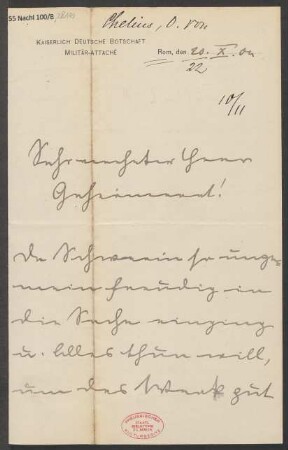 55 Nachl 100/B
Chelius, O. von
KAISERLICH DEUTSCHE BOTSCHAFT
MILITÄR-ATTACHÉ
Rom, den 20. X. 02
22
10/11
Sehr verehrter Herr
Geheimrat!
Da Schwerin so unge-
mein freudig in
die Sache einging
u. Alles thun will,
um das Werk gut